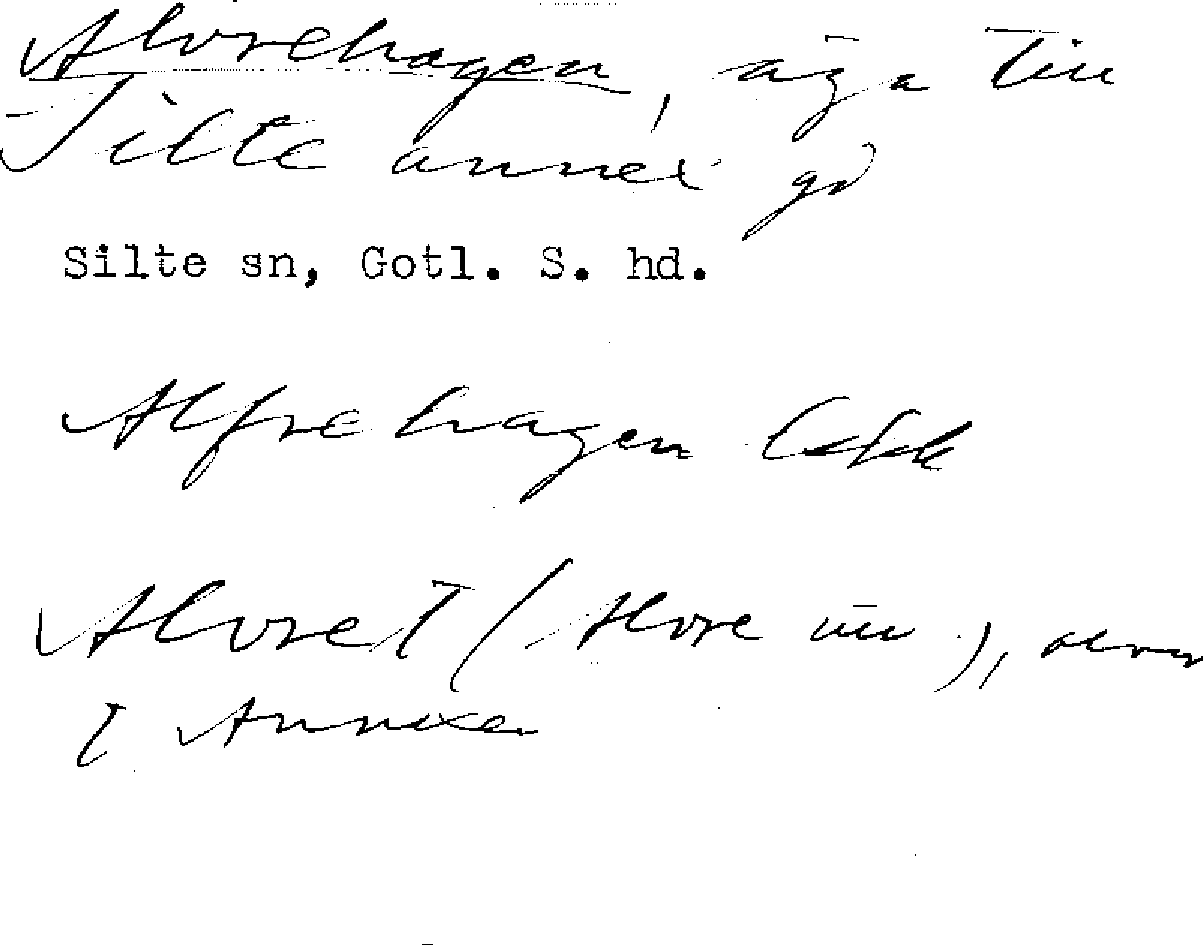 Alvrehagen, äga till
Silte annex gd
Silte sn, Gotl. S. hd.
Alfrehagen
Alvret (Alvre ), 
t Annexen